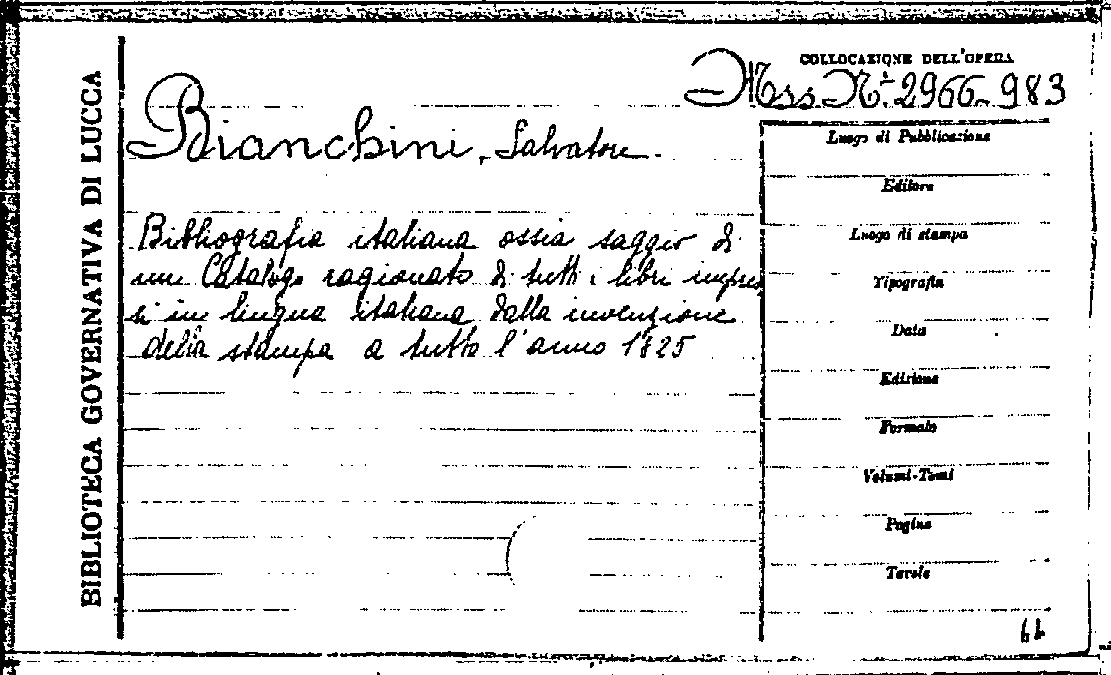 BIBLIOTECA GOVERNATIVA DI LUCCA
COLLOCAZIONE DELL'OPERA
Mss N.° 2966-983
Bianchini, Salvatore.
Bibliografia italiana ossia saggio di
un Catalogo ragionato di tutti i libri impres
si in lingua italiana dalla invenzione
della stampa a tutto l'anno 1825
Luogo di Pubblicazione
Editore
Luogo di stampa
Tipografia
Data
Edizione
Formato
Volumi-Tomi
Pagine
Tavole